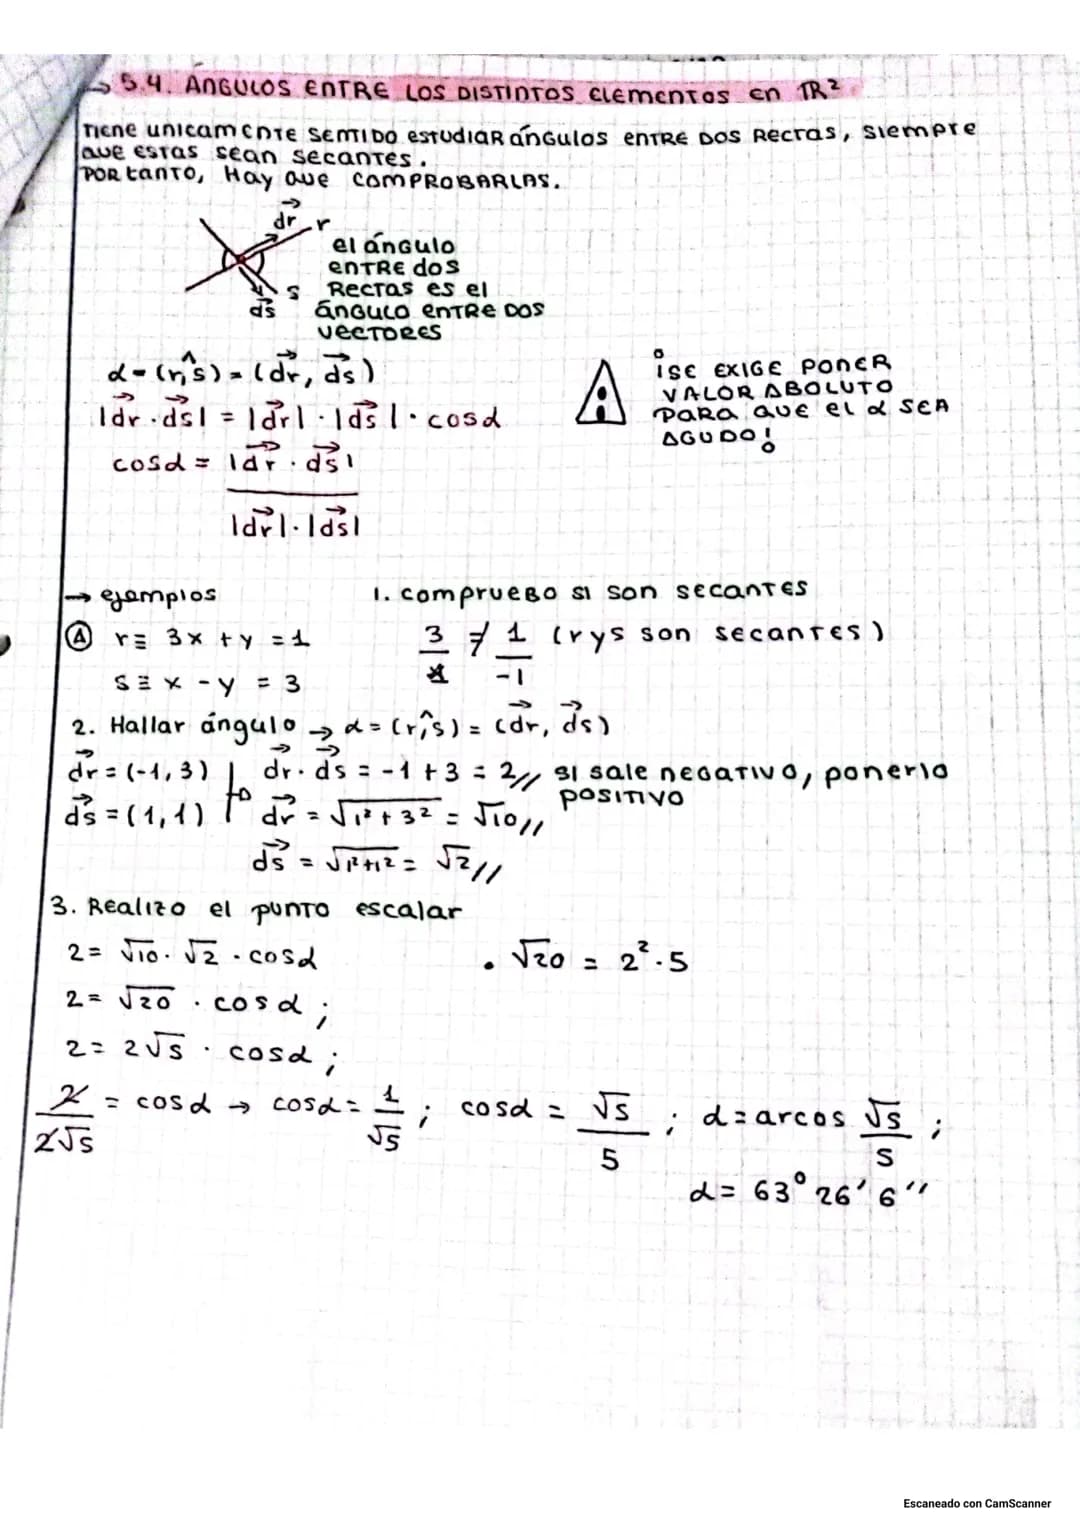 → 5.4. ÁNGULOS ENTRE LOS DISTINTOS ELEMENTOS EN IR²
TIENE UNICAMENTE SENTIDO ESTUDIAR ÁNGULOS ENTRE DOS RECTAS, SIEMPRE
QUE ESTAS SEAN SECANTES.
POR TANTO, HAY QUE COMPROBARLAS.
dr r
el ángulo
ENTRE dos
s RECTAS es el
ds ÁNGULO ENTRE DOS
VECTORES
α = (r,^s) = (dr, ds)
|dr · ds| = |dr| · |ds| · cosα
cosα = |dr · ds|
|dr| · |ds|
¡SE EXIGE PONER
VALOR ABOLUTO
PARA QUE el α SEA
AGUDO!
→ ejemplos
1. compruebo si son secantes
Ⓐ r≡ 3x + y = 1
3/1 ≠ 1/-1 (r y s son secantes)
s≡ x - y = 3
2. Hallar ángulo → α = (r,^s) = (dr, ds)
dr = (-1, 3) dr · ds = -1 + 3 = 2// si sale negativo, ponerlo
positivo
ds = (1, 1) → dr = √1² + 3² = √10//
ds = √1²+1² = √2//
3. Realizo el punto escalar
2 = √10 · √2 · cosα
• √20 = 2² · 5
2 = √20 · cosα;
2 = 2√5 · cosα;
2/2√5 = cosα → cosα = 1/√5; cosα = √5/5; α = arcos √5/5;
α = 63° 26' 6''
Escaneado con CamScanner